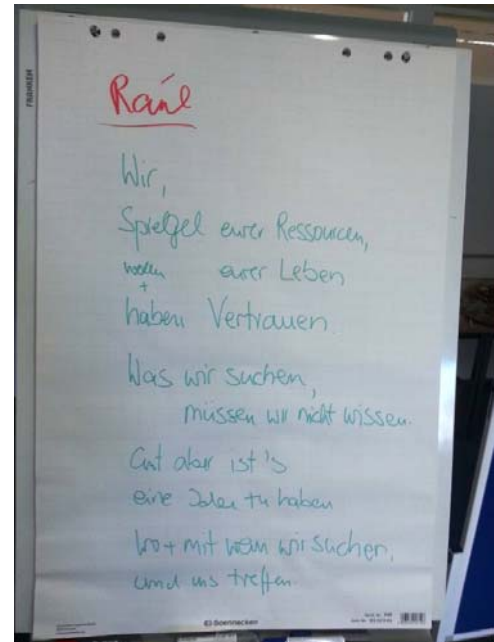 FRANKEN
Raúl
Wir,
Spiegel eurer Ressourcen,
wollen eurer Leben
+
haben Vertrauen
Was wir suchen,
müssen wir nicht wissen.
Gut aber ist's
eine Idee zu haben
wo + mit wem wir suchen,
und uns treffen.
Soennecken